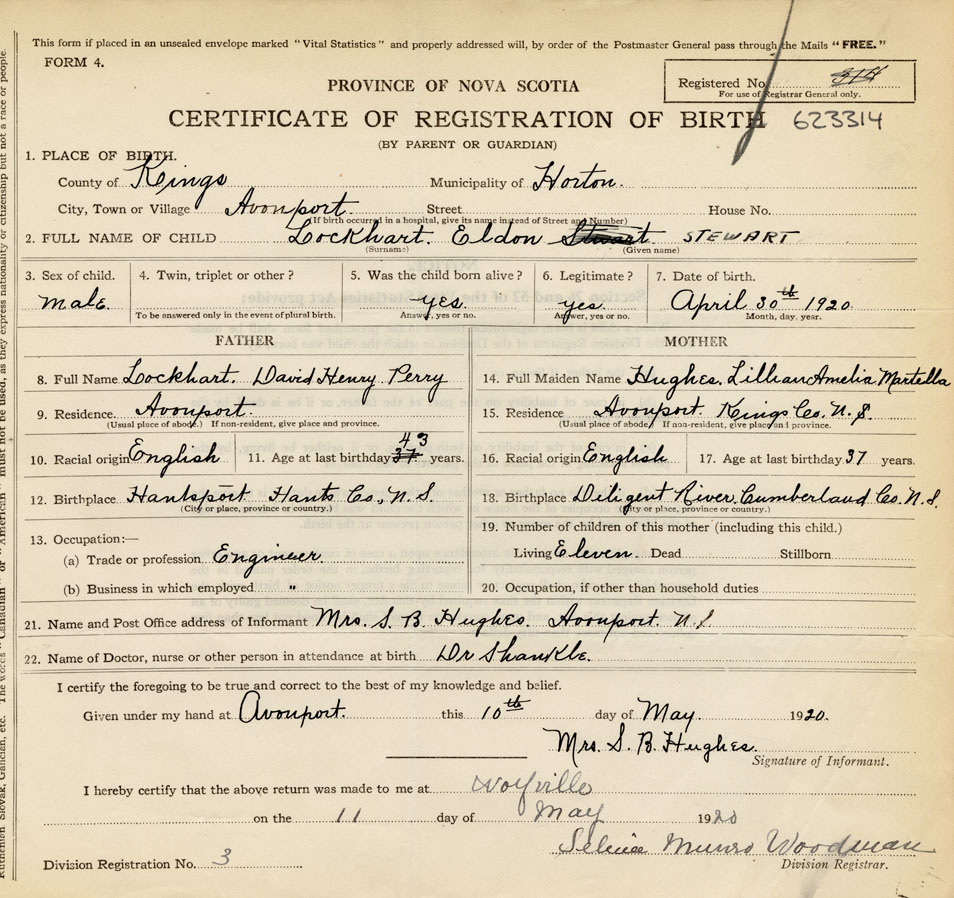 This form if placed in an unsealed envelope marked "Vital Statistics" and properly addressed will, by order of the Postmaster General pass through the Mails "FREE."
FORM 4.
PROVINCE OF NOVA SCOTIA
Registered No.
For use of Registrar General only.
CERTIFICATE OF REGISTRATION OF BIRTH 623314
(BY PARENT OR GUARDIAN)
1. PLACE OF BIRTH.
County of Kings Municipality of Horton.
City, Town or Village Avonport. Street House No.
(If birth occurred in a hospital, give its name instead of Street and Number)
2. FULL NAME OF CHILD Lockhart. Eldon Stewart STEWART
(Surname) (Given name)
3. Sex of child. 4. Twin, triplet or other? 5. Was the child born alive? 6. Legitimate? 7. Date of birth.
Male. yes. yes. April 30th 1920.
To be answered only in the event of plural birth. Answer, yes or no. Answer, yes or no. Month, day, year.
FATHER MOTHER
8. Full Name Lockhart. David Henry Perry
9. Residence. Avonport.
(Usual place of abode.) If non-resident, give place and province.
43
10. Racial origin English 11. Age at last birthday 37. years.
12. Birthplace Hantsport Hants Co., N.S.
(City or place, province or country.)
13. Occupation:—
(a) Trade or profession Engineer.
(b) Business in which employed "
14. Full Maiden Name Hughes. Lillian Amelia Martella
15. Residence Avonport. Kings Co. N.S.
(Usual place of abode.) If non-resident, give place and province.
16. Racial origin English 17. Age at last birthday 37 years.
18. Birthplace Diligent River. Cumberland Co. N.S.
(City or place, province or country.)
19. Number of children of this mother (including this child.)
Living Eleven. Dead Stillborn
20. Occupation, if other than household duties
21. Name and Post Office address of Informant Mrs. S. B. Hughes. Avonport. N.S
22. Name of Doctor, nurse or other person in attendance at birth Dr Shankle.
I certify the foregoing to be true and correct to the best of my knowledge and belief.
Given under my hand at Avonport. this 10th day of May. 1920.
Mrs. S. B. Hughes.
Signature of Informant.
I hereby certify that the above return was made to me at Wolfville
on the 11 day of May 1920
Selina Munro Woodman
Division Registration No. 3 Division Registrar.